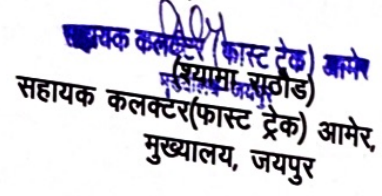 सहायक कलक्टर (फास्ट ट्रेक) आमेर
(श्यामा राठौड)
जयपुर
सहायक कलक्टर(फास्ट ट्रेक) आमेर,
मुख्यालय, जयपुर